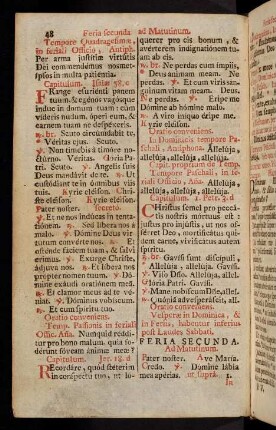 48 Feria secunda
Tempore Quadragesimæ,
in feriali Officio, Antiph.
Per arma justitiæ virtutis
Dei commendemus nosmet-
ipsos in multa patientia.
Capitulum. Isaiæ 58. c
FRange esurienti panem
tuum, & egénos vagosque
indue in domum tuam: cùm
vidéris nudum, óperi eum, &
carnem tuam ne despéxeris.
n. br. Scuto circúmdabit te.
Véritas ejus. Scuto.
Non timébis à timóre no-
ctúrno. Véritas. Glória Pa-
tri. Scuto. Angelis suis
Deus mandávit de te. Ut
custódiant te in ómnibus viis
tuis. Kyrie eléison. Chri-
ste eléison. Kyrie eléison.
Pater noster. secretò.
Et ne nos indúcas in tenta-
tiónem. Sed líbera nos à
malo. Dómine Deus vir-
tútum convérte nos. Et
osténde fáciem tuam, & salvi
érimus. Exurge Christe,
ádjuva nos. Et líbera nos
propter nomen tuum. Dó-
mine exáudi oratiónem meã.
Et clamor meus ad te vé-
niat. Dóminus vobíscum.
Et cum spíritu tuo.
Oratio conveniens.
Temp. Passionis in feriali
Offic. Aña. Numquid réddi-
tur pro bono malum, quia fo-
dérunt fóveam ánimæ meæ?
Capitulum. Jer. 18. d
REcordáre, quòd stéterim
in conspéctu tuo, ut lo-
ad Matutinum.
querer pro eis bonum, &
avérterem indignatiónem tuã
ab eis.
n. br. Ne perdas cum ímpiis,
Deus ánimam meam. Ne
perdas. Et cum viris sán-
guinum vitam meam. Deus.
Ne perdas. Eripe me
Dómine ab hómine malo.
A viro iníquo éripe me.
Kyrie eléison.
Oratio conveniens.
In Dominicis tempore Pa-
schali, Antiphona. Allelúja,
allelúja, allelúja, allelúja.
Capit. proprium de Temp.
Tempore Paschali, in fe-
riali Officio, Aña. Allelúja,
allelúja, allelúja, allelúja.
Capitulum. 1. Petr. 3. d
CHristus semel pro pec-
cátis nostris mórtuus est:
justus pro injústis, ut nos of-
férret Deo, mortificátus qui-
dem carne, vivificátus autem
spíritu.
n. br. Gavísi sunt discípuli,
Allelúja, allelúja. Gavísi.
Viso Dño. Allelúja, allel.
Glória Patri. Gavísi.
Mane nobíscum Dñe, allel.
Quóniã advesperáscit, allel.
Oratio conveniens.
Vesperæ in Dominica, &
in Feriis, habentur inferius
post Laudes Sabbati.
FERIA SECUNDA.
Ad Matutinum.
Pater noster. Ave María.
Credo. Dómine lábia
mea apéries. ut supra. 1.
In